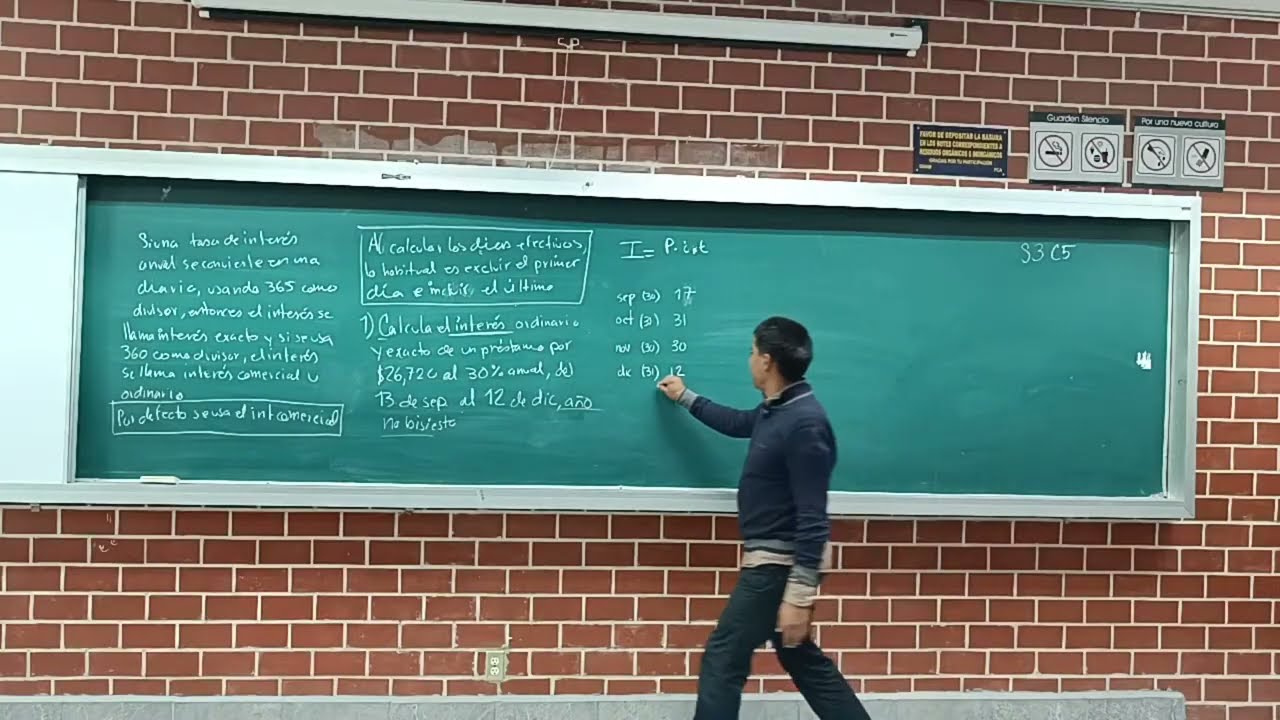 Si una tasa de interés
anual se convierte en una
diaria, usando 365 como
divisor, entonces el interés se
llama interés exacto y si se usa
360 como divisor, el interés
se llama interés comercial u
ordinario
Por defecto se usa el int comercial
Al calcular los días efectivos,
lo habitual es excluir el primer
día e incluir el último
1) Calcula el interés ordinario
y exacto de un préstamo por
$26,720 al 30% anual, del
13 de sep al 12 de dic, año
no bisiesto
I = P·i·t
sep (30) 17
oct (31) 31
nov (30) 30
dic (31) 12
S3 C5
FAVOR DE DEPOSITAR LA BASURA
EN LOS BOTES CORRESPONDIENTES A
RESIDUOS ORGÁNICOS E INORGÁNICOS
GRACIAS POR TU PARTICIPACIÓN
FCA
Guarden Silencio
Por una nueva cultura